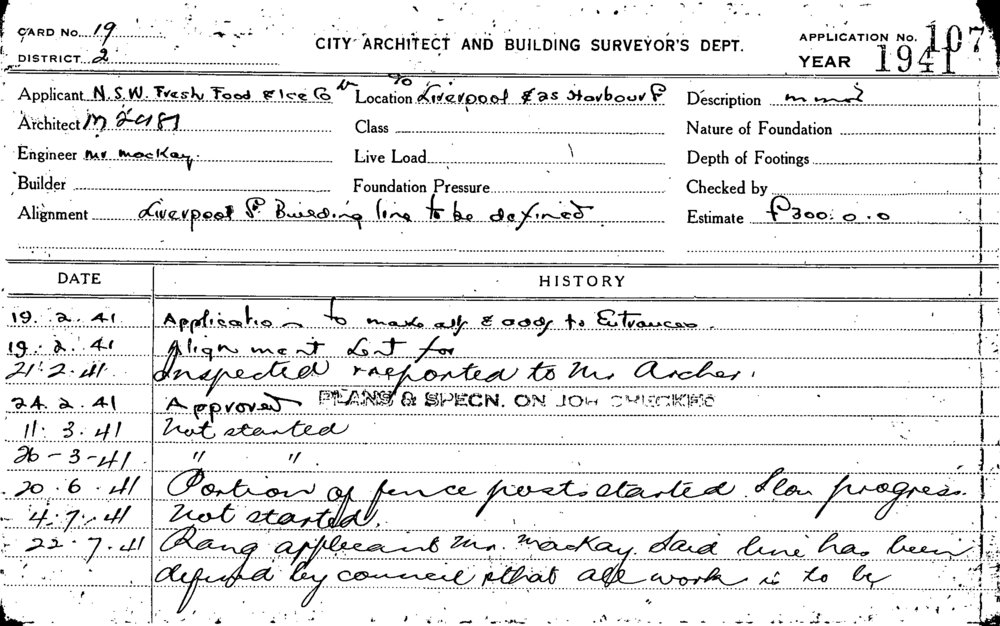 CARD No. 19
DISTRICT 2
CITY ARCHITECT AND BUILDING SURVEYOR'S DEPT.
APPLICATION No. 107
YEAR 1941
Applicant N.S.W. Fresh Food & Ice Co
Location Liverpool & 25 Harbour St
Description
Architect M 2481
Class
Nature of Foundation
Engineer Mr. MacKay.
Live Load
Depth of Footings
Builder
Foundation Pressure
Checked by
Alignment Liverpool St. Building line to be defined
Estimate £300.0.0
DATE HISTORY
19.2.41 Application to make & adds to Entrances.
19.2.41 Alignment for
21.2.41. Inspected & reported to Mr Archer.
24.2.41 Approved PLANS & SPECN. ON JOB CHECKED
11.3.41 Not started
26-3-41 " ".
20.6.41 Portion of fence posts started. Slow progress.
4.7.41 Not started.
22.7.41 Rang applicant Mr. MacKay. Said line has been
defined by council & that all work is to be